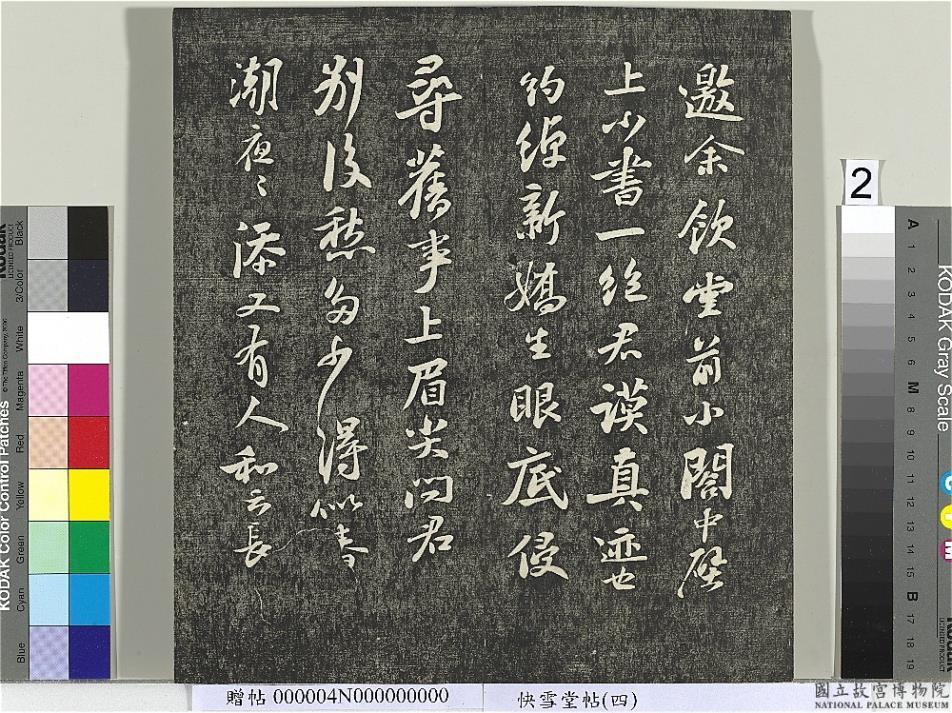 邀余飲堂前小閣中壁
上小書一絕君謨真迹也
約綽新嬌生眼底侵
尋舊事上眉尖問君
別後愁多少得似春
潮夜〻添又有人和云長
2
KODAK Color Control Patches
© The Tiffen Company, 2000
Kodak
LICENSED PRODUCT
Black
3/Color
White
Magenta
Red
Yellow
Green
Cyan
Blue
KODAK Gray Scale
A 1 2 3 4 5 6 M 8 9 10 11 12 13 14 15 B 17 18 19
C
Y
M
Kodak
LICENSED PRODUCT
贈帖 000004N000000000
快雪堂帖(四)
國立故宮博物院
NATIONAL PALACE MUSEUM